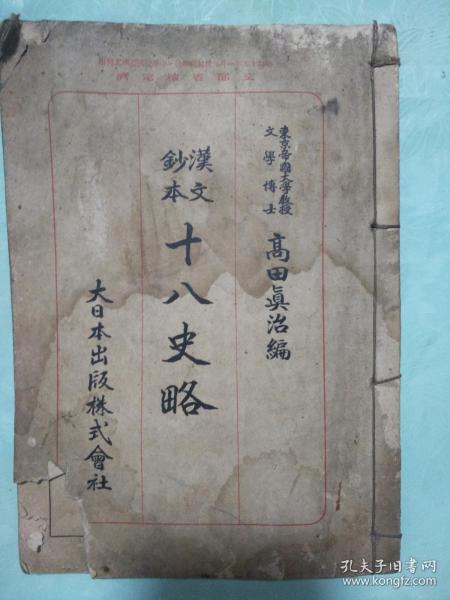 文部省検定済
東京帝國大學教授
文學博士
高田眞治編
漢文
鈔本
十八史略
大日本出版株式會社
孔夫子旧书网
www.kongfz.com